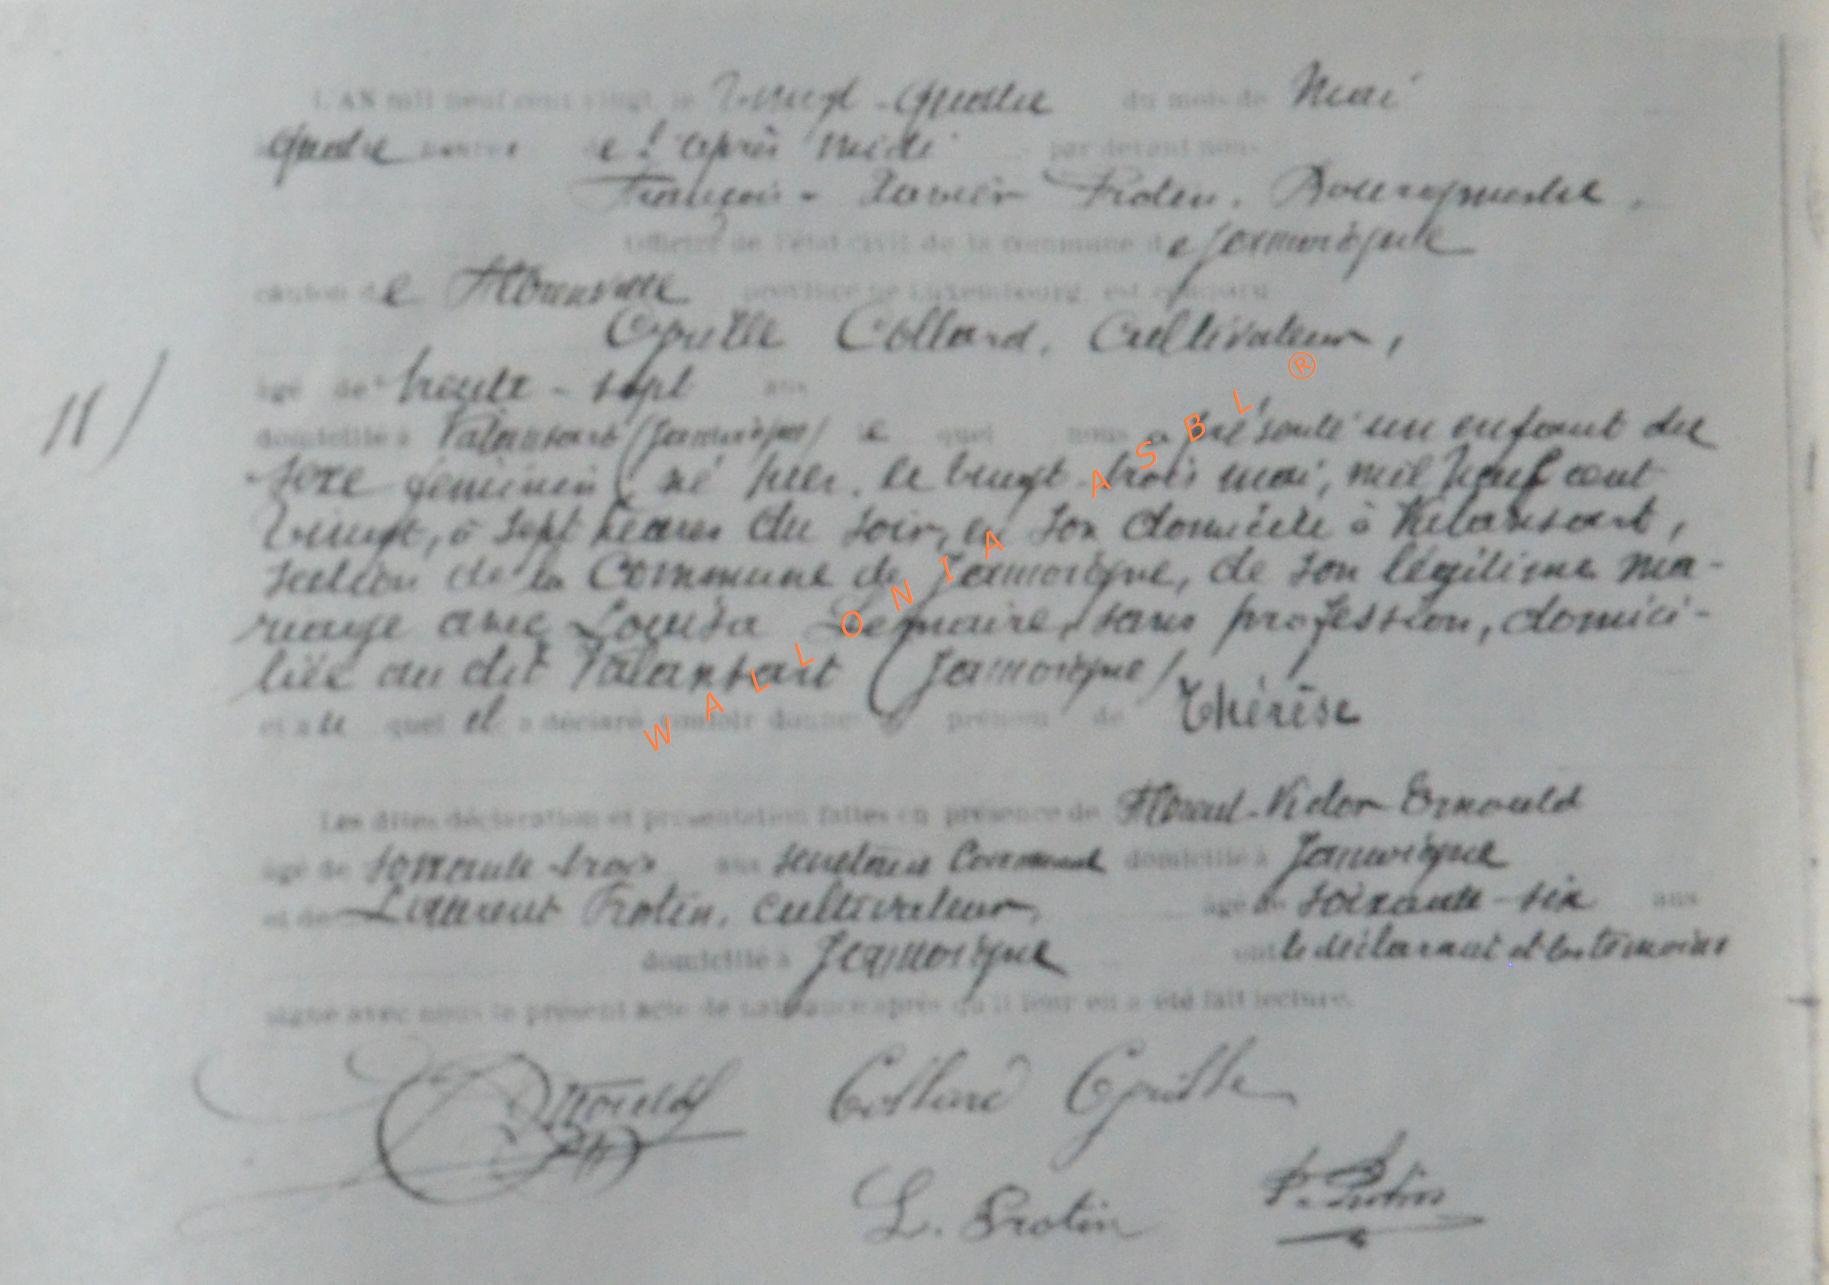 L'AN mil neuf cent vingt, le Vingt-Quatre du mois de Mai
à quatre heures de l'après midi par devant nous
François-Xavier Protin, Bourgmestre,
Officier de l'état civil de la commune de Jamoigne
canton de Florenville province de Luxembourg, est comparu
Cyrille Collard, Cultivateur,
11)
âgé de trente-sept ans
domicilié à Valansart (Jamoigne) le quel nous a présenté un enfant du
sexe féminin né hier, le vingt-trois mai, mil neuf cent
vingt, à sept heures du soir, en son domicile à Valansart,
section de la Commune de Jamoigne, de son légitime ma-
riage avec Louisa Lemaire, sans profession, domici-
liée au dit Valansart (Jamoigne)
et au quel il a déclaré vouloir donner le prénom de Thérèse
Les dites déclaration et présentation faites en présence de Victor Ernould
âgé de soixante-trois ans secrétaire Communal domicilié à Jamoigne
et de Laurent Protin, cultivateur, âgé de soixante-six ans
domicilié à Jamoigne ont le déclarant et les témoins
signé avec nous le présent acte de naissance après qu'il leur en a été fait lecture.
Ernould Collard Cyrille
L. Protin Protin
WALLONIA ASBL ®